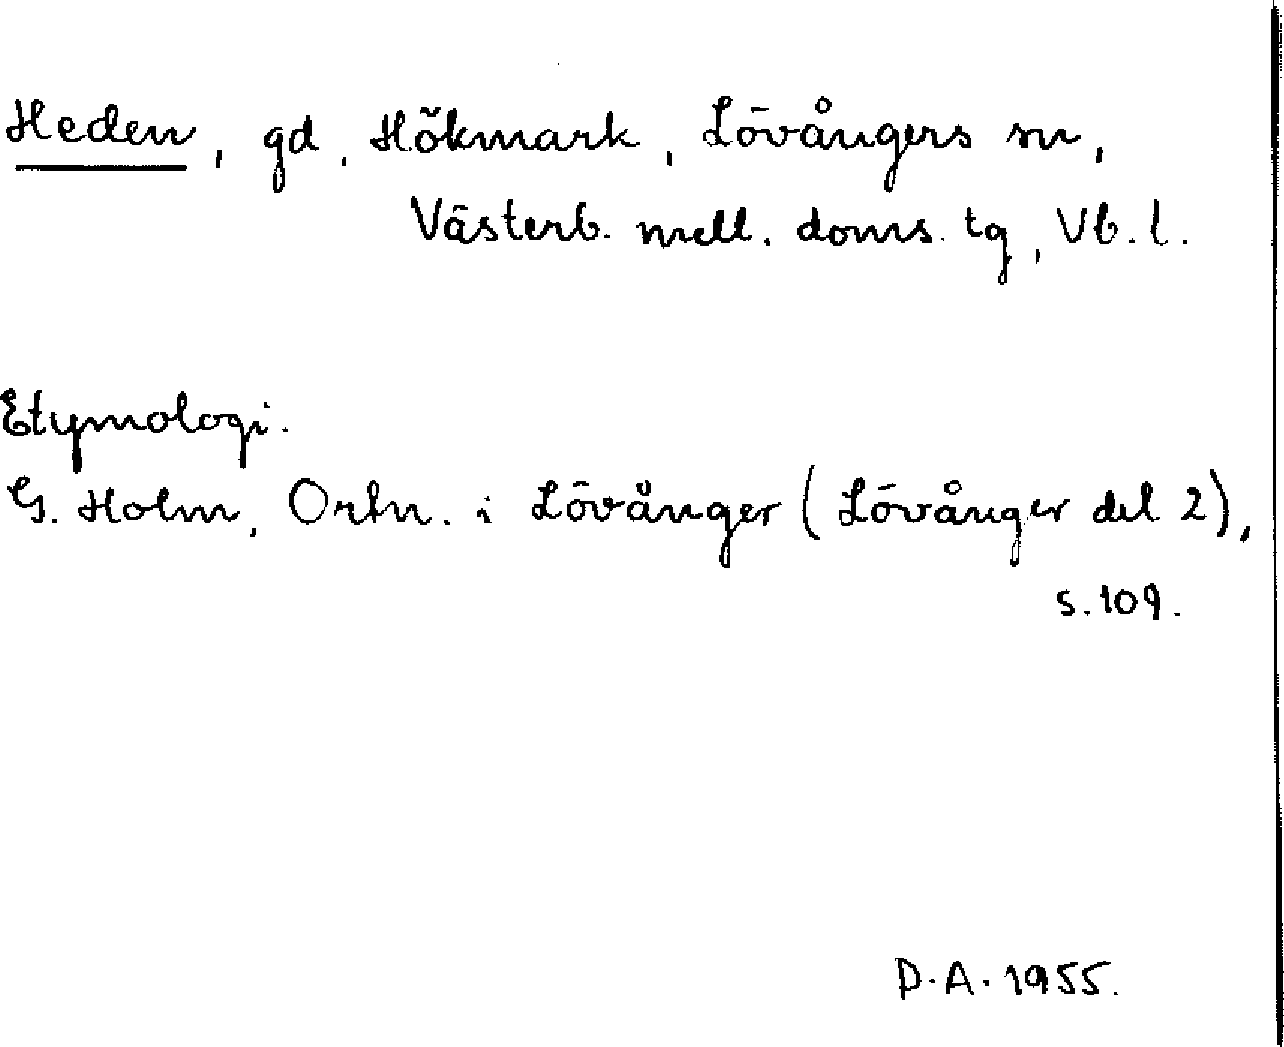 Heden, gd, Hökmark, Lövångers sn,
Västerb. mell. doms. tg, Vb. l.
Etymologi.
G. Holm, Ortn. i Lövånger (Lövånger del 2),
s. 109.
D. A. 1955.